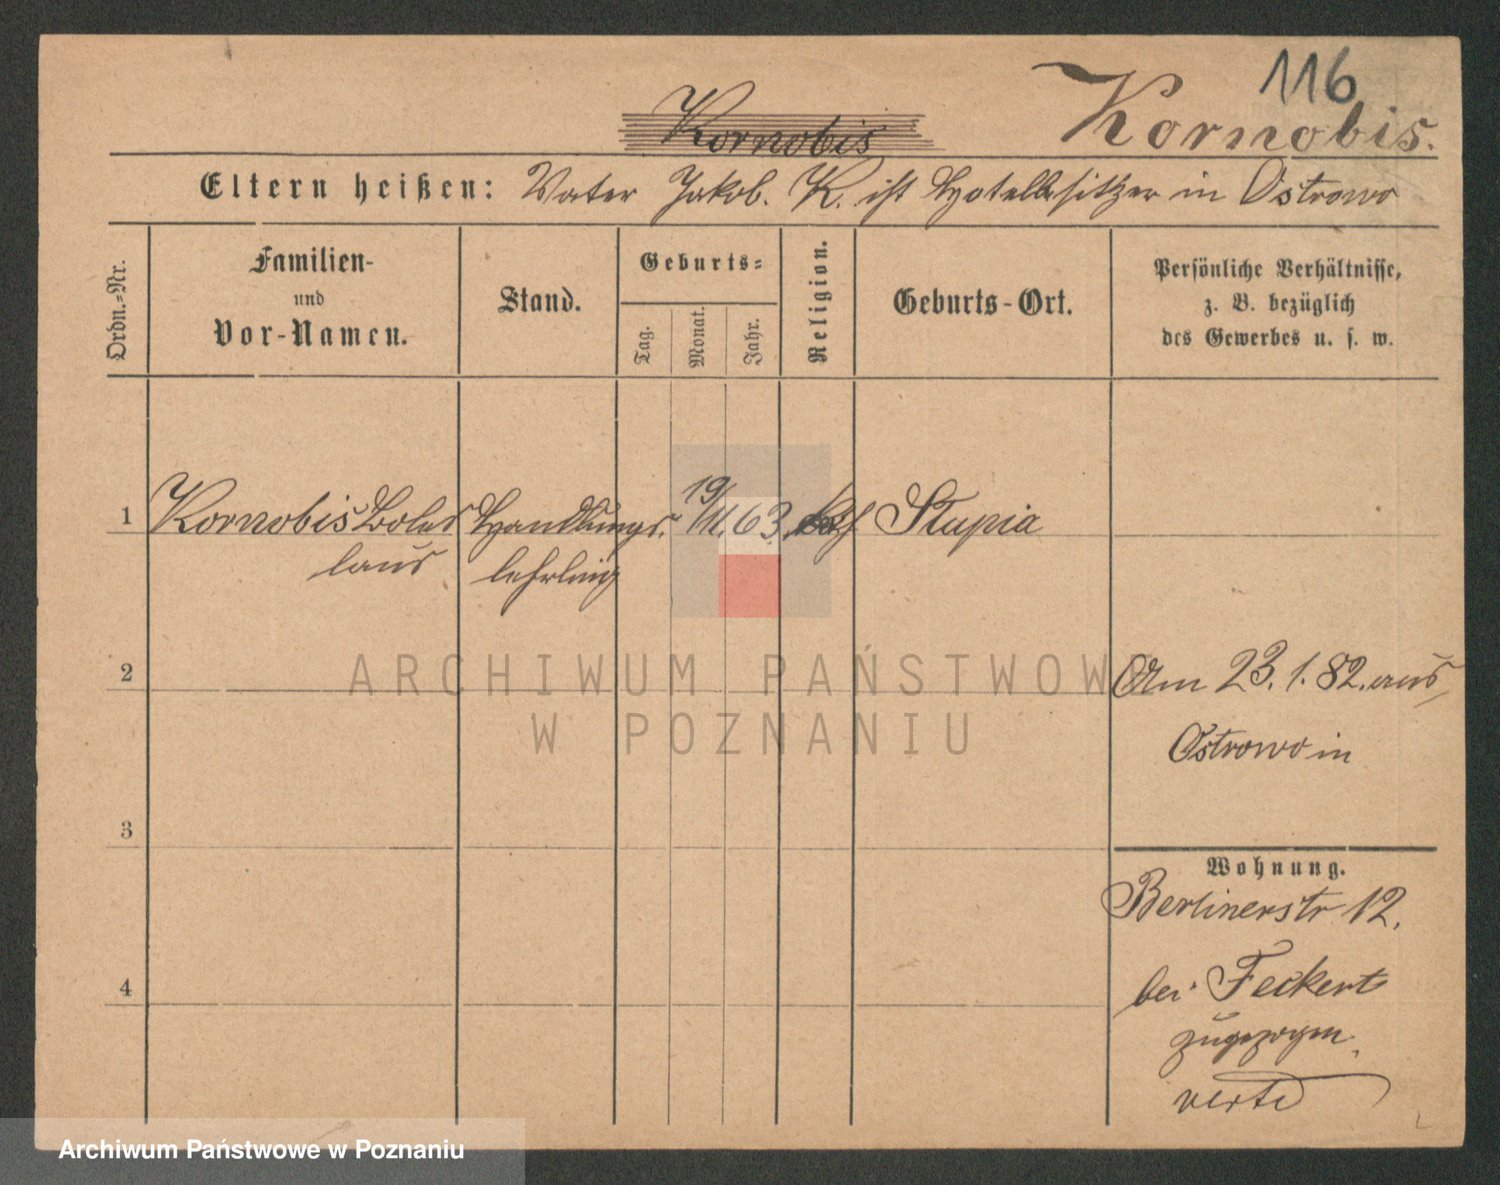 116
Kornobis
Kornobis.
Eltern heißen: Vater Jakob. K. ist Hotelbesitzer in Ostrowo
Ordn.=Nr.
Familien-
und
Vor-Namen.
Stand.
Geburts=
Tag.
Monat.
Jahr.
Religion.
Geburts-Ort.
Persönliche Verhältnisse,
z. B. bezüglich
des Gewerbes u. s. w.
1 Kornobis Boles Handlungs. 19/ 63. Stupia
laus lehrling
2
Am 23. 1. 82. aus
Ostrowo in
3
Wohnung.
Berlinerstr 12.
4
bei Feckert
zugezogen.
verte
ARCHIWUM PAŃSTWOWE
W POZNANIU
Archiwum Państwowe w Poznaniu